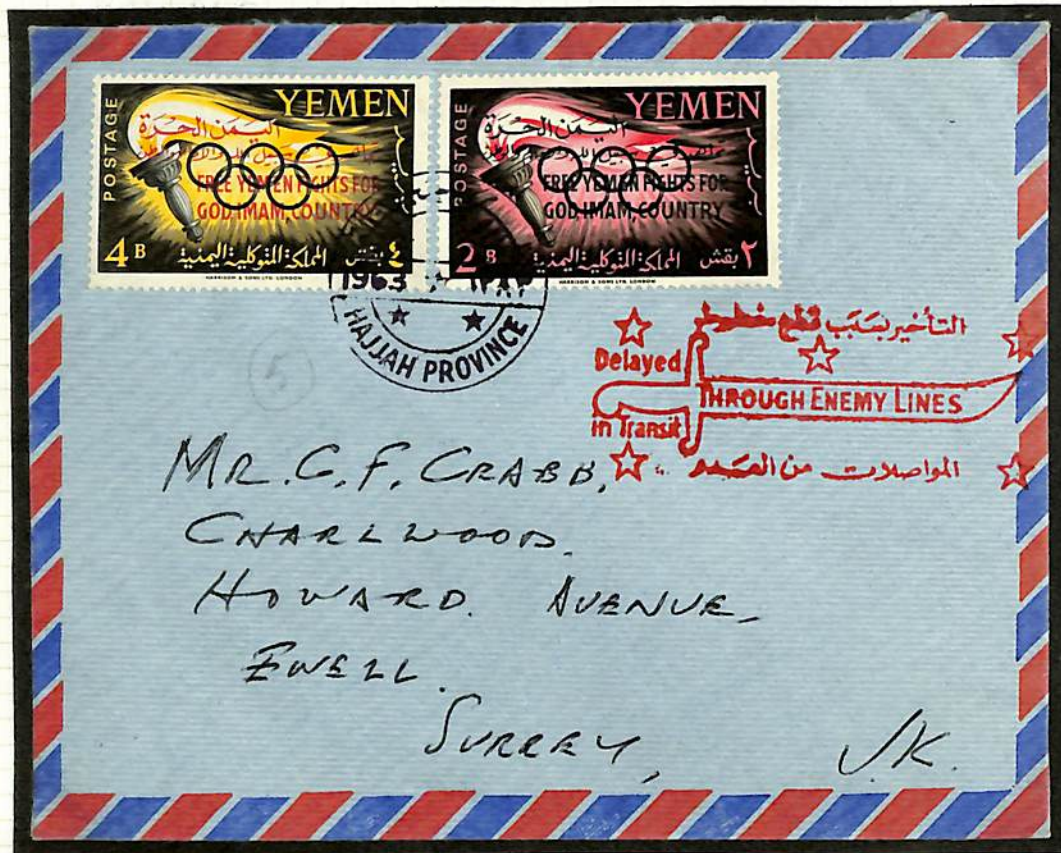 POSTAGE
YEMEN
اليمن الحرة
FREE YEMEN FIGHTS FOR
GOD, IMAM, COUNTRY
4 B
المملكة المتوكلية اليمنية
٤ بقش
HARRISON & SONS LTD. LONDON
POSTAGE
YEMEN
اليمن الحرة
FREE YEMEN FIGHTS FOR
GOD, IMAM, COUNTRY
2 B
المملكة المتوكلية اليمنية
٢ بقش
HARRISON & SONS LTD. LONDON
1963
HAJJAH PROVINCE
التأخير بسبب قطع خطوط
Delayed
THROUGH ENEMY LINES
in Transit
المواصلات من العدو
5
MR. C. F. CRABB,
CHARLWOOD.
HOWARD. AVENUE,
EWELL.
SURREY,
U.K.